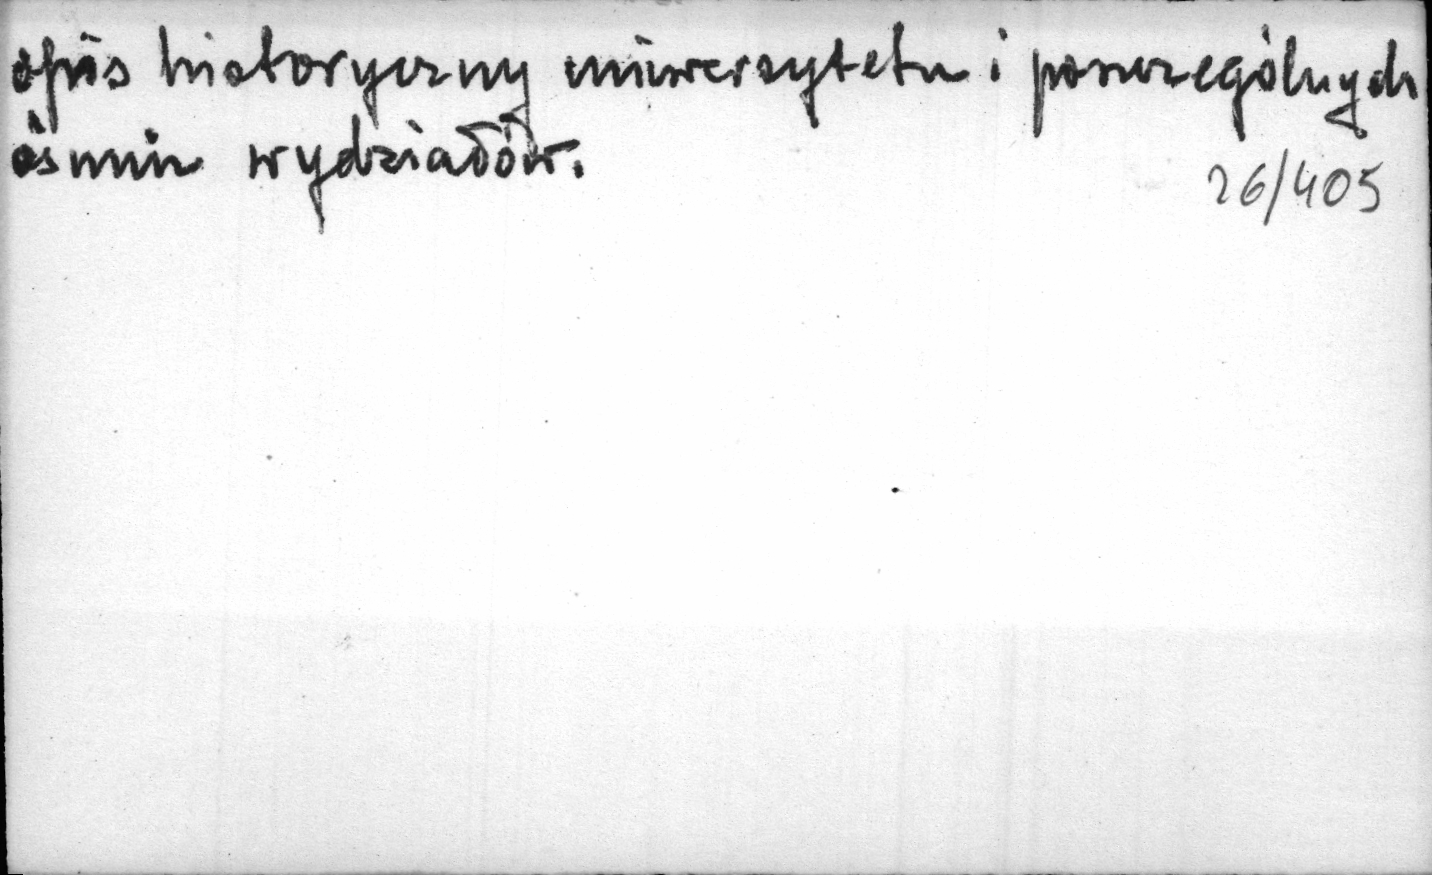 opis historyczny uniwersytetu i poszczególnych
ośmiu wydziałów.
26/405